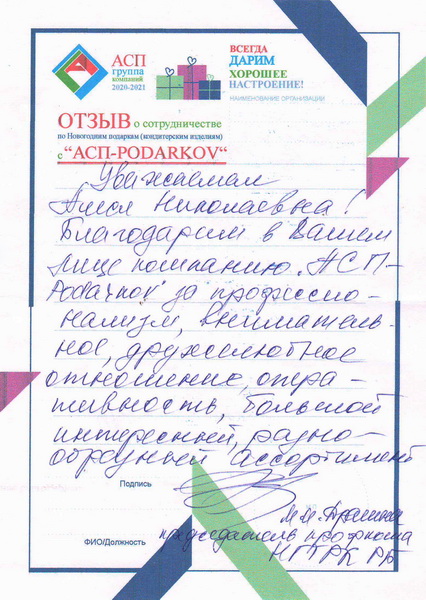 АСП
группа
компаний
2020-2021
ВСЕГДА
ДАРИМ
ХОРОШЕЕ
НАСТРОЕНИЕ!
НАИМЕНОВАНИЕ ОРГАНИЗАЦИИ
ОТЗЫВ о сотрудничестве
по Новогодним подаркам (кондитерским изделиям)
с “АСП-PODARKOV“
Уважаемая
Алеся Николаевна!
Благодарим в Вашем
лице компанию „АСП-
Podarkov“ за професcио-
нализм, вниматель-
ное, дружелюбное
отношение, опера-
тивность, большой
интересный, разно-
образный ассортимент
Подпись
председатель профкома
ФИО/Должность
НГТРК РБ